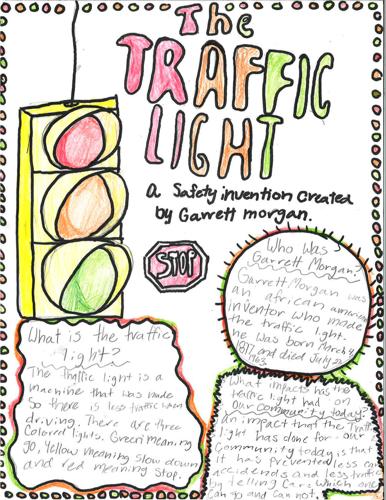 The
TRAFFIC
LIGHT
a Safety invention created
by Garrett morgan.
STOP
Who was
Garrett Morgan?
Garrett Morgan was
an african
inventor who made
the traffic light.
he was born March 4,
and died July
What is the traffic
light?
The traffic light is a
machine that was made
So there is less traffic when
driving. There are three
colored lights. Green meaning
go, Yellow meaning slow down
and red meaning stop.
What impacts has the
traffic light had on
our community today?
an impact that the Traffic
light has done for our
Community today is that
prevented less car
accidents and less traffic
by telling Cars which one
can go and can not.